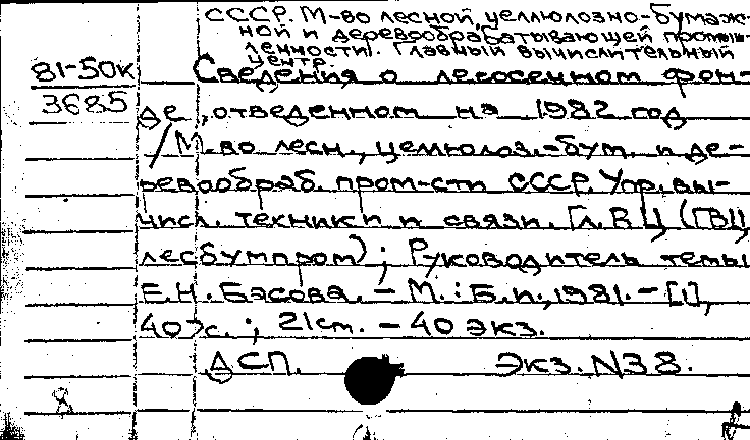 СССР. М-во лесной, целлюлозно-бумаж-
ной и деревообрабатывающей промыш-
ленности. Главный вычислительный
центр.
81-50к
3685
Сведения о лесосечном фон-
де, отведенном на 1982 год
/М-во лесн., целлюлоз.-бум. и де-
ревообраб. пром-сти СССР. Упр. вы-
числ. техники и связи. Гл. ВЦ (ГВЦ
лесбумпром); Руководитель темы
Е.Н. Басова. - М.: Б.и., 1981. - [1],
407с.; 21см. - 40 экз.
ДСП.
Экз. N38.
8